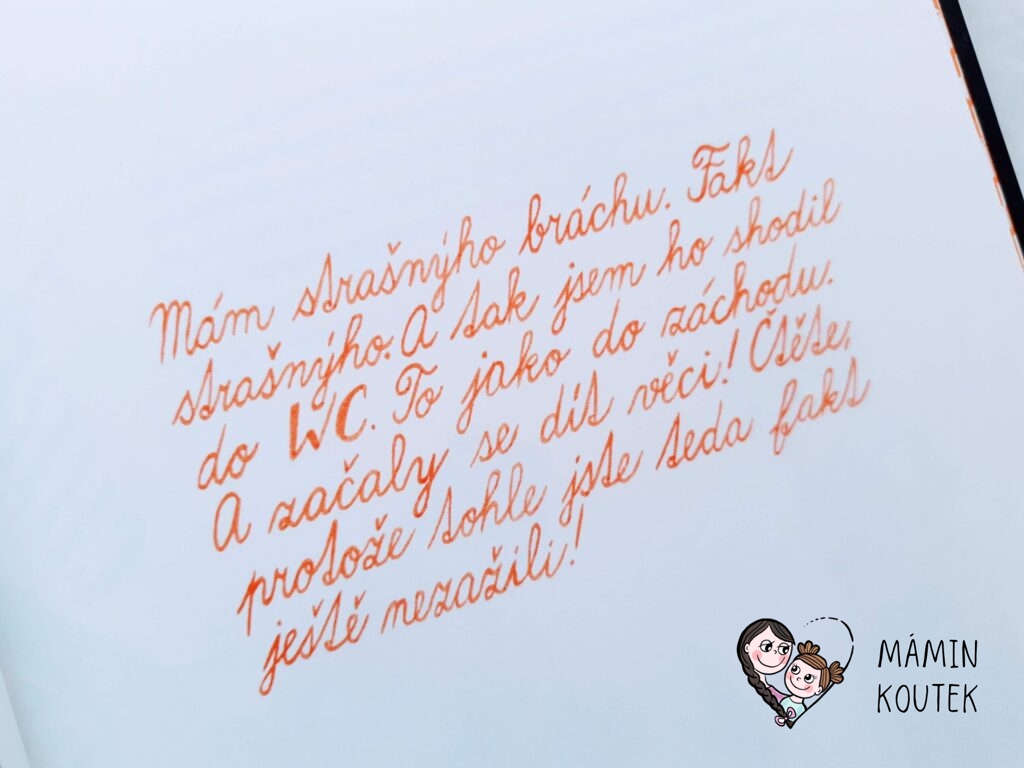 Mám strašnýho bráchu. Fakt
strašnýho. A tak jsem ho shodil
do WC. To jako do záchodu.
A začaly se dít věci! Čtěte,
protože tohle jste teda fakt
ještě nezažili!
MÁMIN
KOUTEK